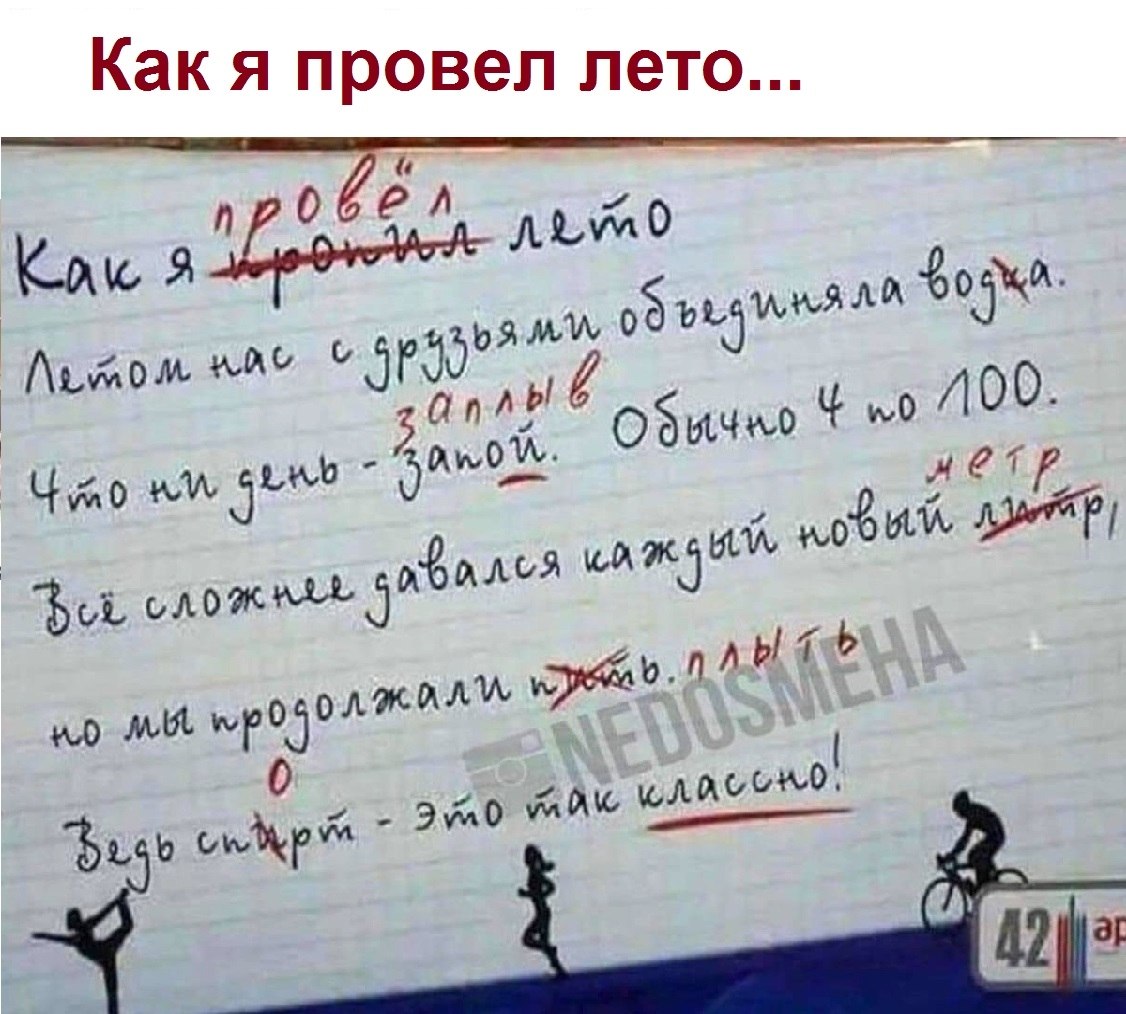 Как я провел лето...
провёл
Как я пропил лето
Летом нас с друзьями объединяла водка.
заплыв
Что ни день - запой. Обычно 4 по 100.
метр
Всё сложнее давался каждый новый литр,
но мы продолжали пить. плыть
о
Ведь спирт - это так классно!
NEDOSMEHA
42 ар